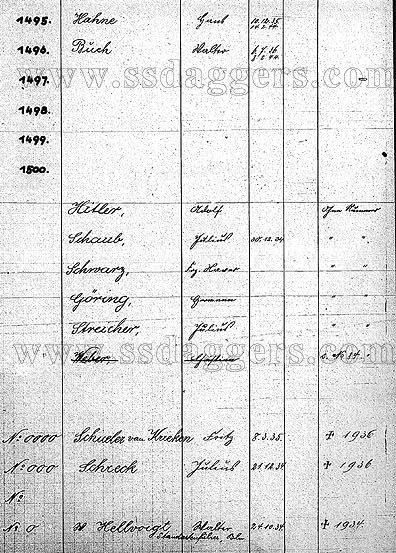 1495. Hahne Paul 10.12.35.
1496. Buch Walter 6.7.36
www.ssdaggers.com
1497.
1498.
1499.
1500.
Hitler, Adolf Ohne Nummer
Schaub, Julius 30.12.34 " "
Schwarz, Frz. Xaver " "
Göring, Hermann " "
Streicher, Julius " "
www.ssdaggers.com
Weber, Christian
No 0000 Schueler van Krieken Fritz 8.3.35. ✝ 1936
No 000 Schreck Julius 21.12.34 ✝ 1936
No
No 0 Hellvoigt Walter 24.10.34 ✝ 1934.
Standartenführer,